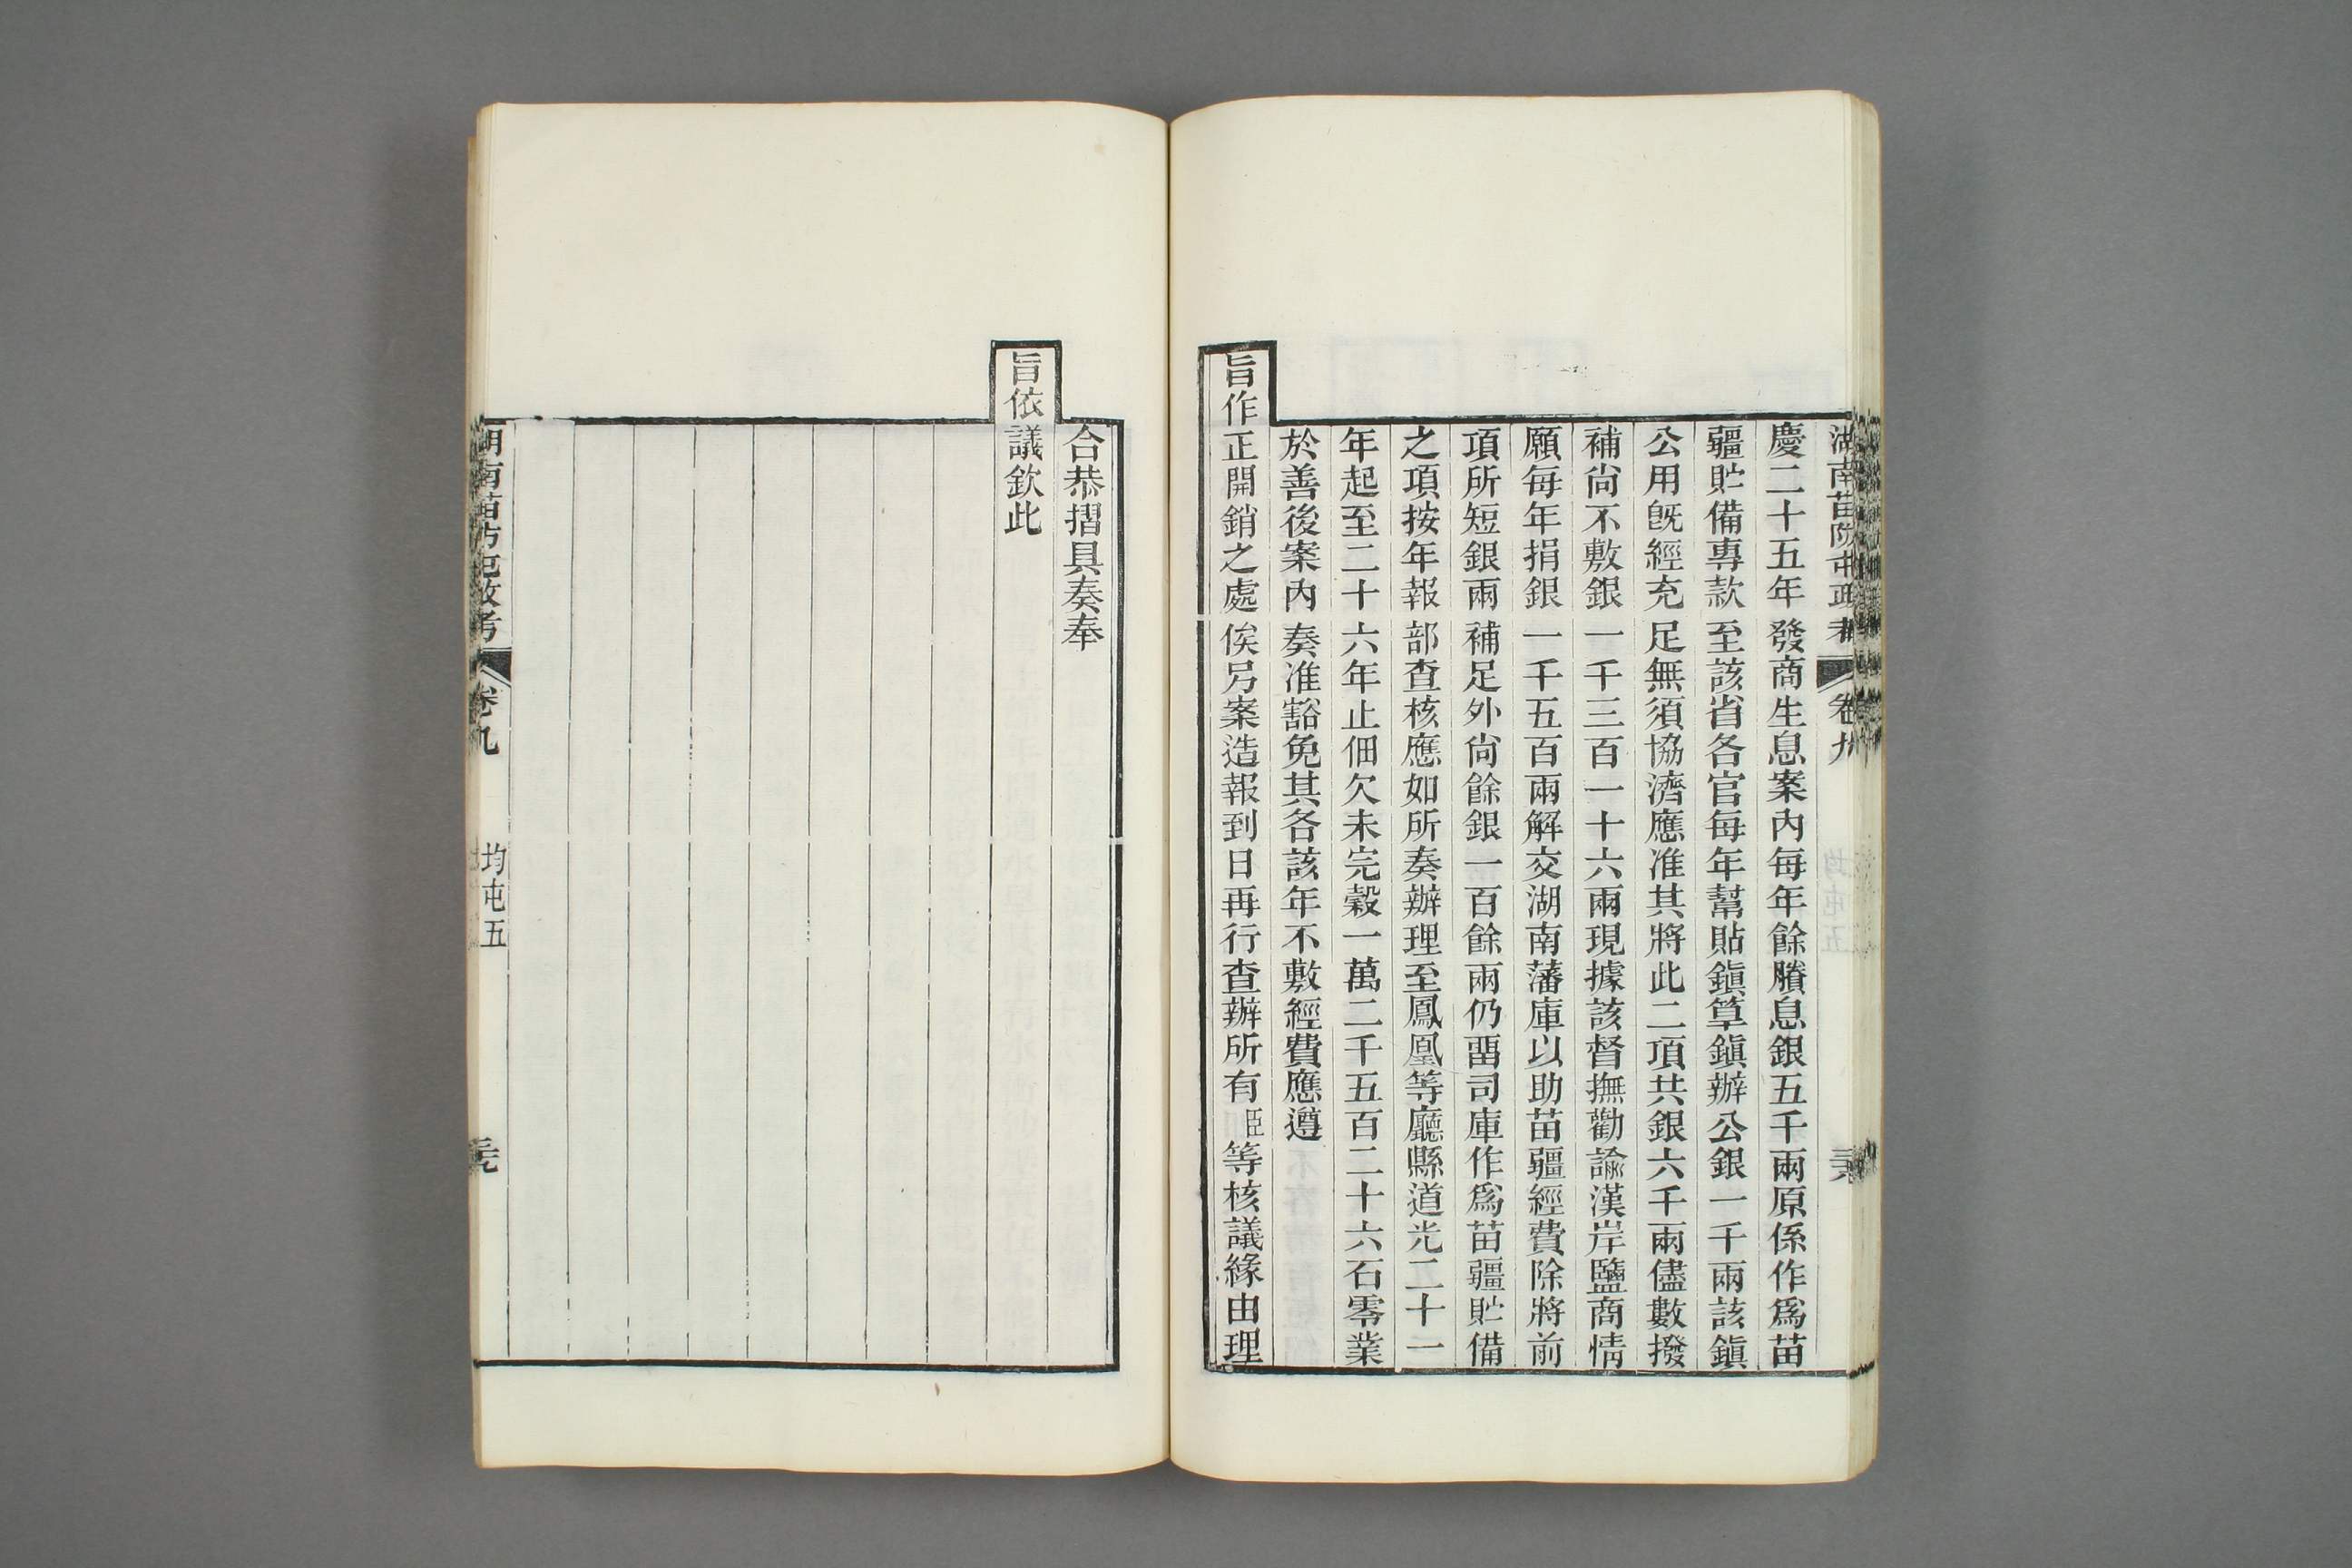 慶二十五年發商生息案內每年餘賸息銀五千兩原係作爲苗
疆貯備專款至該省各官每年幫貼鎭筸鎭辦公銀一千兩該鎭
公用旣經充足無須協濟應准其將此二項共銀六千兩儘數撥
補尙不敷銀一千三百一十六兩現據該督撫勸諭漢岸鹽商情
願每年捐銀一千五百兩解交湖南藩庫以助苗疆經費除將前
項所短銀兩補足外尙餘銀一百餘兩仍畱司庫作爲苗疆貯備
之項按年報部查核應如所奏辦理至鳳凰等廳縣道光二十一
年起至二十六年止佃欠未完穀一萬二千五百二十六石零業
於善後案內奏准豁免其各該年不敷經費應遵
旨作正開銷之處俟另案造報到日再行查辦所有臣等核議緣由理
合恭摺具奏奉
旨依議欽此
湖南苗防屯政考 卷九 均屯五